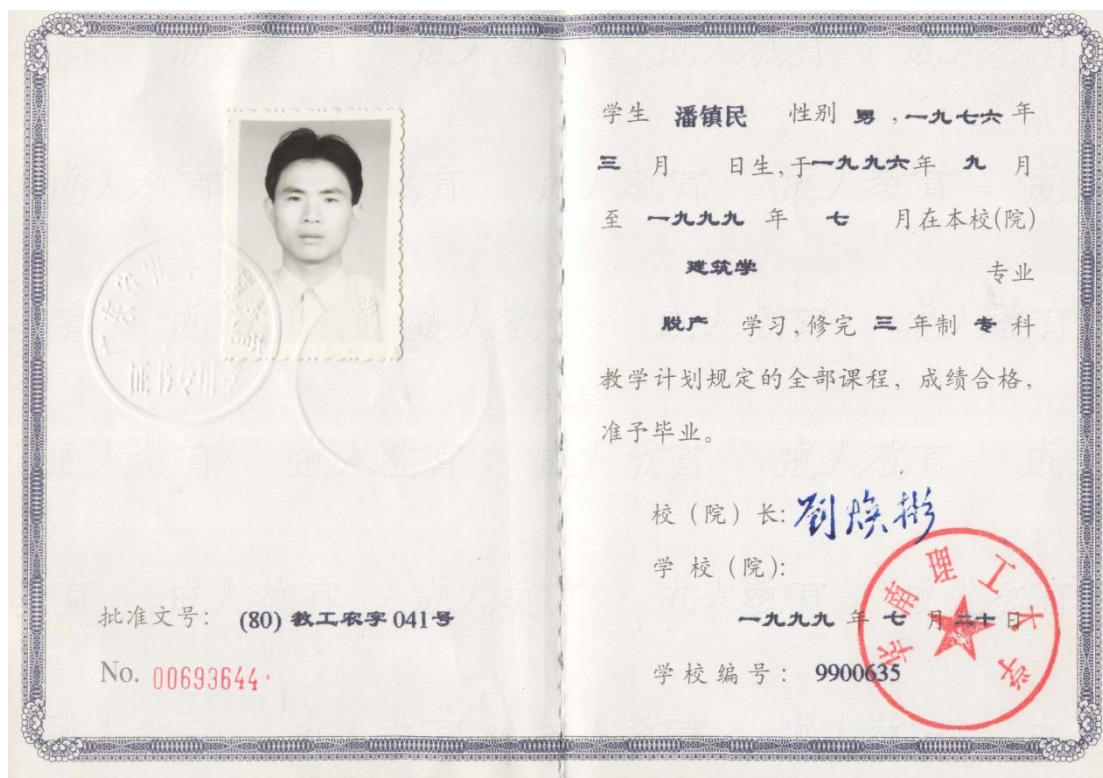 批准文号: (80) 教工农字 041号
No. 00693644
学生 潘镇民 性别 男 ,一九七六 年
三 月 日生,于一九九六年 九 月
至 一九九九 年 七 月在本校(院)
建筑学 专业
脱产 学习,修完 三 年制 专 科
教学计划规定的全部课程, 成绩合格,
准予毕业。
校 (院) 长: 劉焕彬
学 校 (院):
华南理工大学
一九九九 年 七 月二十日
学 校 编 号: 9900635
证书专用章
成人教育